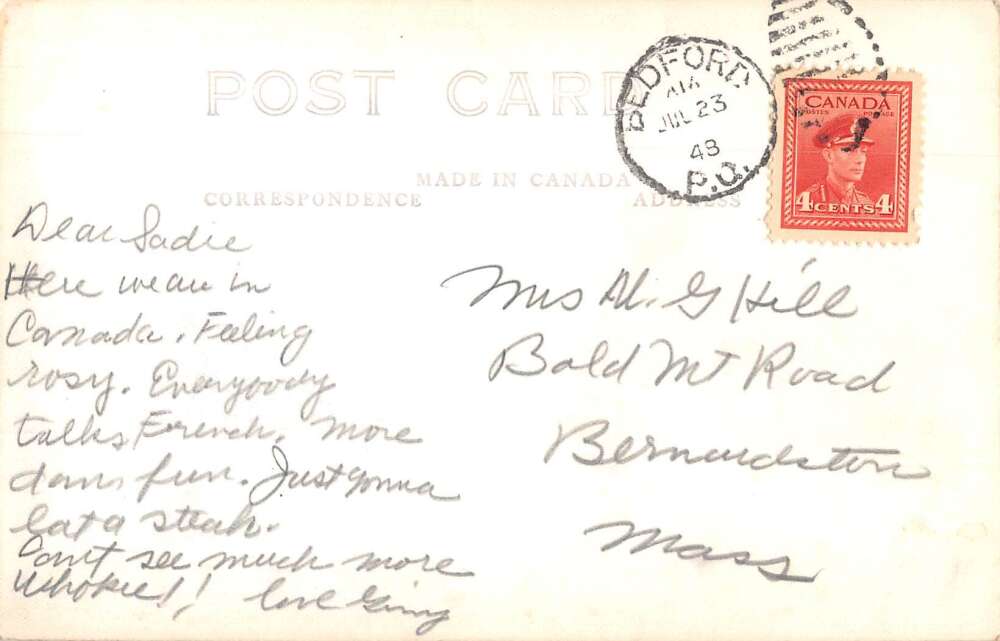 POST CARD
BEDFORD
JUL 23
48
P.Q.
CANADA
POSTES POSTAGE
4 CENTS 4
MADE IN CANADA
CORRESPONDENCE
ADDRESS
Dear Sadie
Here we are in
Canada. Feeling
rosy. Everybody
talks French. More
dam fun. Just gonna
eat a steak.
Can't see much more
love Ginny
Mrs M. G Hill
Bald Mt Road
Bernardston
Mass